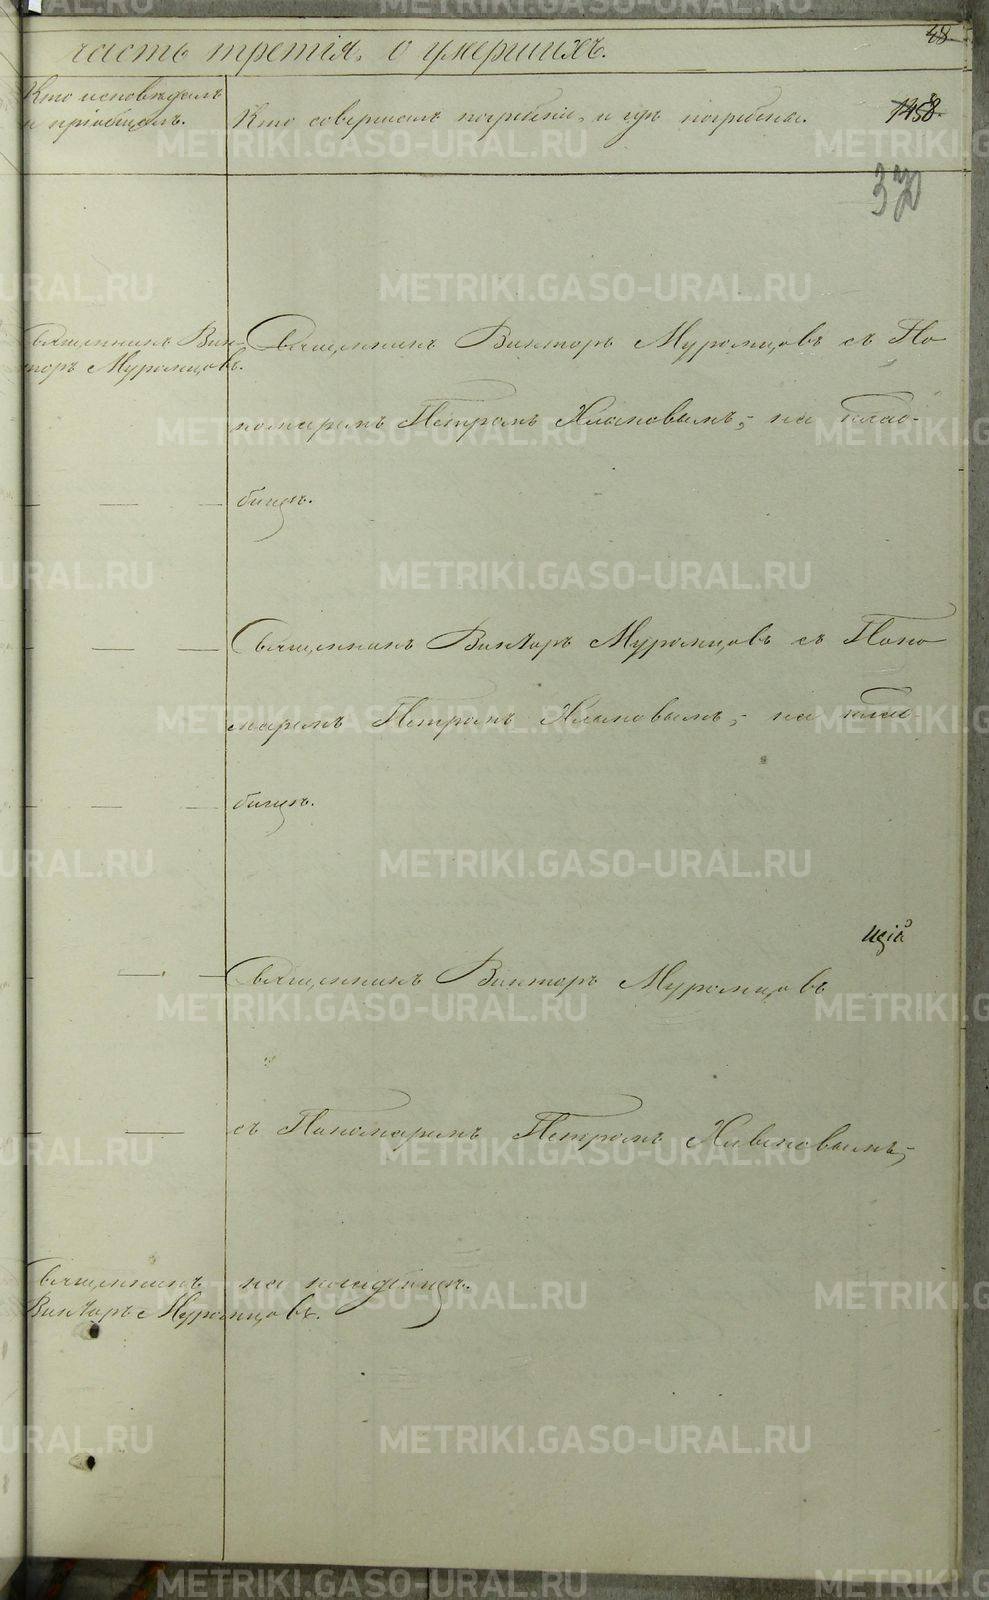 48
часть третія, о умершихъ.
Кто исповѣдалъ
и пріобщалъ.
Кто совершалъ погребеніе, и гдѣ погребены.
1458.
37
Священникъ Вик-
торъ Муромцовъ.
Священникъ Викторъ Муромцовъ съ По
номаремъ Петромъ
на клад-
бищѣ.
Священникъ Викторъ Муромцовъ съ Поно
маремъ Петромъ
на клад-
бищѣ.
Священникъ Викторъ Муромцовъ
съ Пономаремъ Петромъ
Священникъ
Викторъ Муромцовъ.
на кладбищѣ.
METRIKI.GASO-URAL.RU